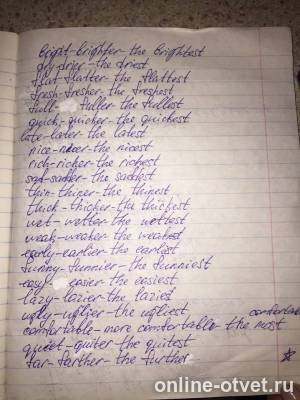 bright-brighter-the brightest
dry-drier-the driest
flat-flatter-the flattest
fresh-fresher-the freshest
full- fuller-the fullest
quick-quicker-the quickest
late-later the latest
nice-nicer-the nicest
rich-richer-the richest
sad-sadder-the saddest
thin-thiner-the thinest
thick-thicker-the thickest
wet-wetter-the wettest
weak-weaker-the weakest
early-earlier-the earliest
funny-funnier-the funniest
easy- easier-the easiest
lazy-lazier-the laziest
ugly-uglier-the ugliest,
comfortable-more comfortable-the most comfortable
quiet-quiter-the quitest
far-farther-the further
online-otvet.ru